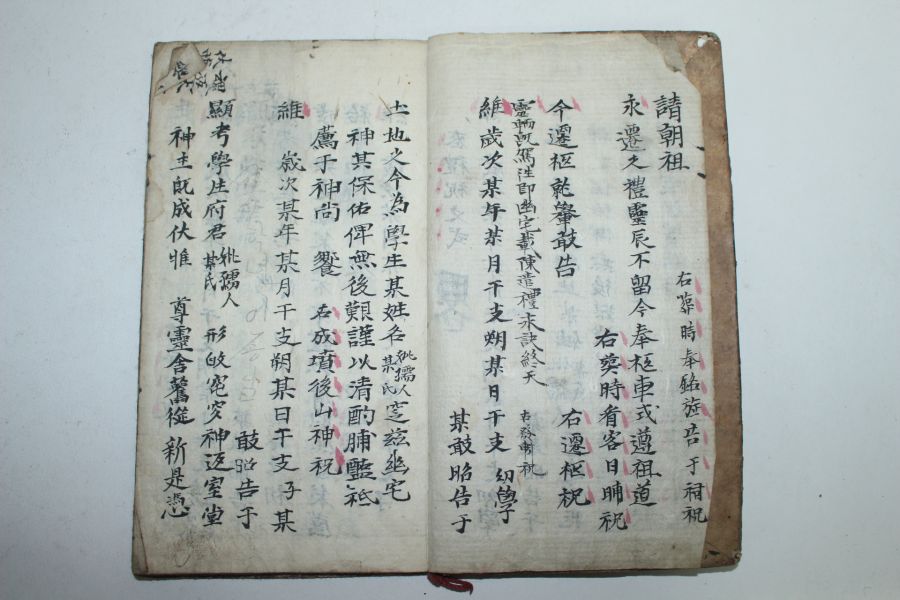 請朝祖
右葬時奉銘旌告于祠祝
永遷之禮靈辰不留今奉柩車式遵祖道
右葬時有客日晡祝
今遷柩就轝敢告
右遷柩祝
靈輀旣駕往卽幽宅載陳遣禮永訣終天
右發靷祝
維歲次某年某月干支朔某日干支 幼學
某敢昭告于
土地之今為學生某姓名某氏孺人窆玆幽宅
神其保佑俾無後艱謹以清酌脯醢祗
薦于神尚 饗 右成墳後山神祝
維 歲次某年某月干支朔某日干支子某
敢昭告于
顯考學生府君某氏孺人 形歸窀穸神返室堂
神主旣成伏惟 尊靈舍舊從 新是憑